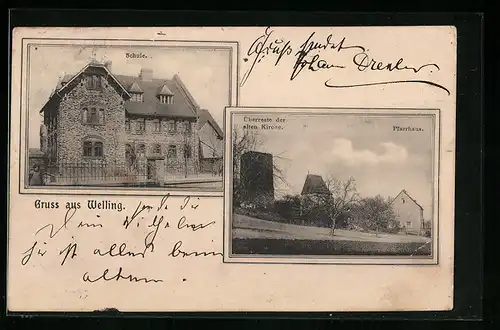 Schule.
Gruss sendet
Johann Drexler
Überreste der
alten Kirche.
Pfarrhaus.
Gruss aus Welling.
Dein Wilhelm
hier ist alles beim
alten